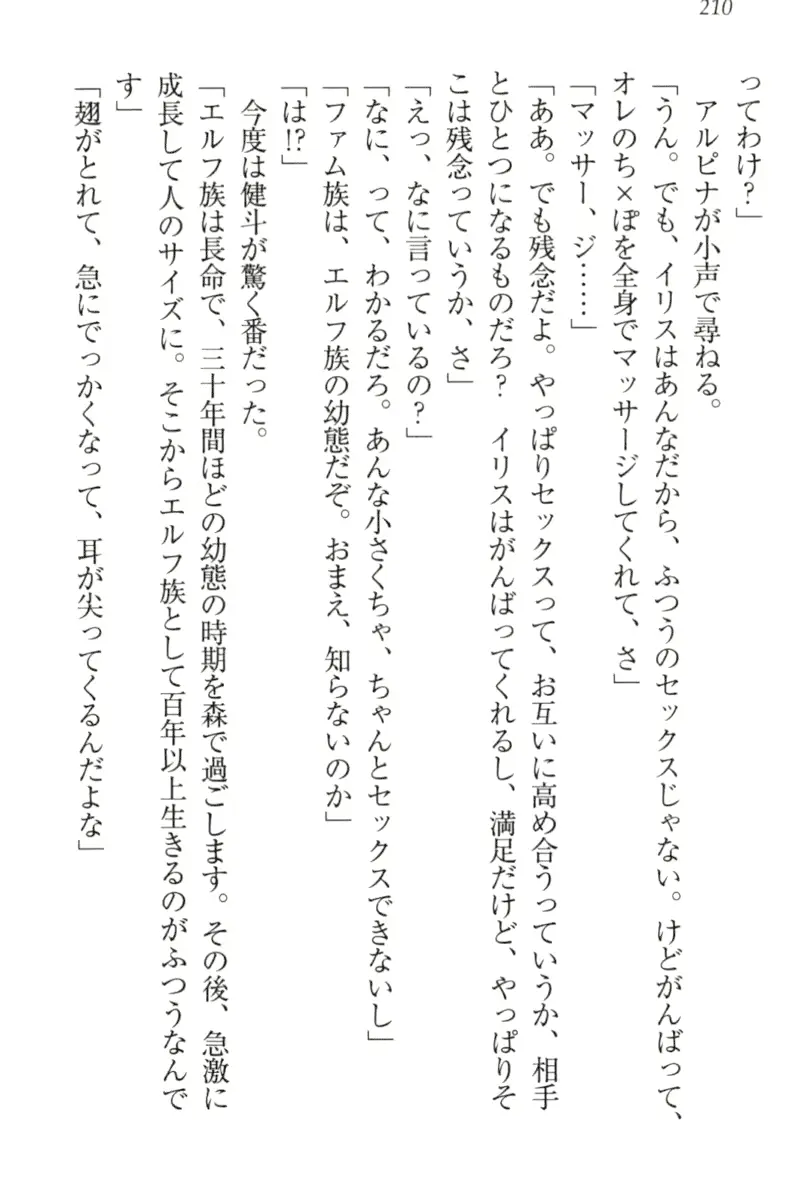 210
ってわけ?」
　アルピナが小声で尋ねる。
「うん。でも、イリスはあんなだから、ふつうのセックスじゃない。けどがんばって、
オレのち×ぽを全身でマッサージしてくれて、さ」
「マッサー、ジ……」
「ああ。でも残念だよ。やっぱりセックスって、お互いに高め合うっていうか、相手
とひとつになるものだろ?　イリスはがんばってくれるし、満足だけど、やっぱりそ
こは残念っていうか、さ」
「えっ、なに言っているの?」
「なに、って、わかるだろ。あんな小さくちゃ、ちゃんとセックスできないし」
「ファム族は、エルフ族の幼態だぞ。おまえ、知らないのか」
「は!?」
　今度は健斗が驚く番だった。
「エルフ族は長命で、三十年間ほどの幼態の時期を森で過ごします。その後、急激に
成長して人のサイズに。そこからエルフ族として百年以上生きるのがふつうなんで
す」
「翅がとれて、急にでっかくなって、耳が尖ってくるんだよな」